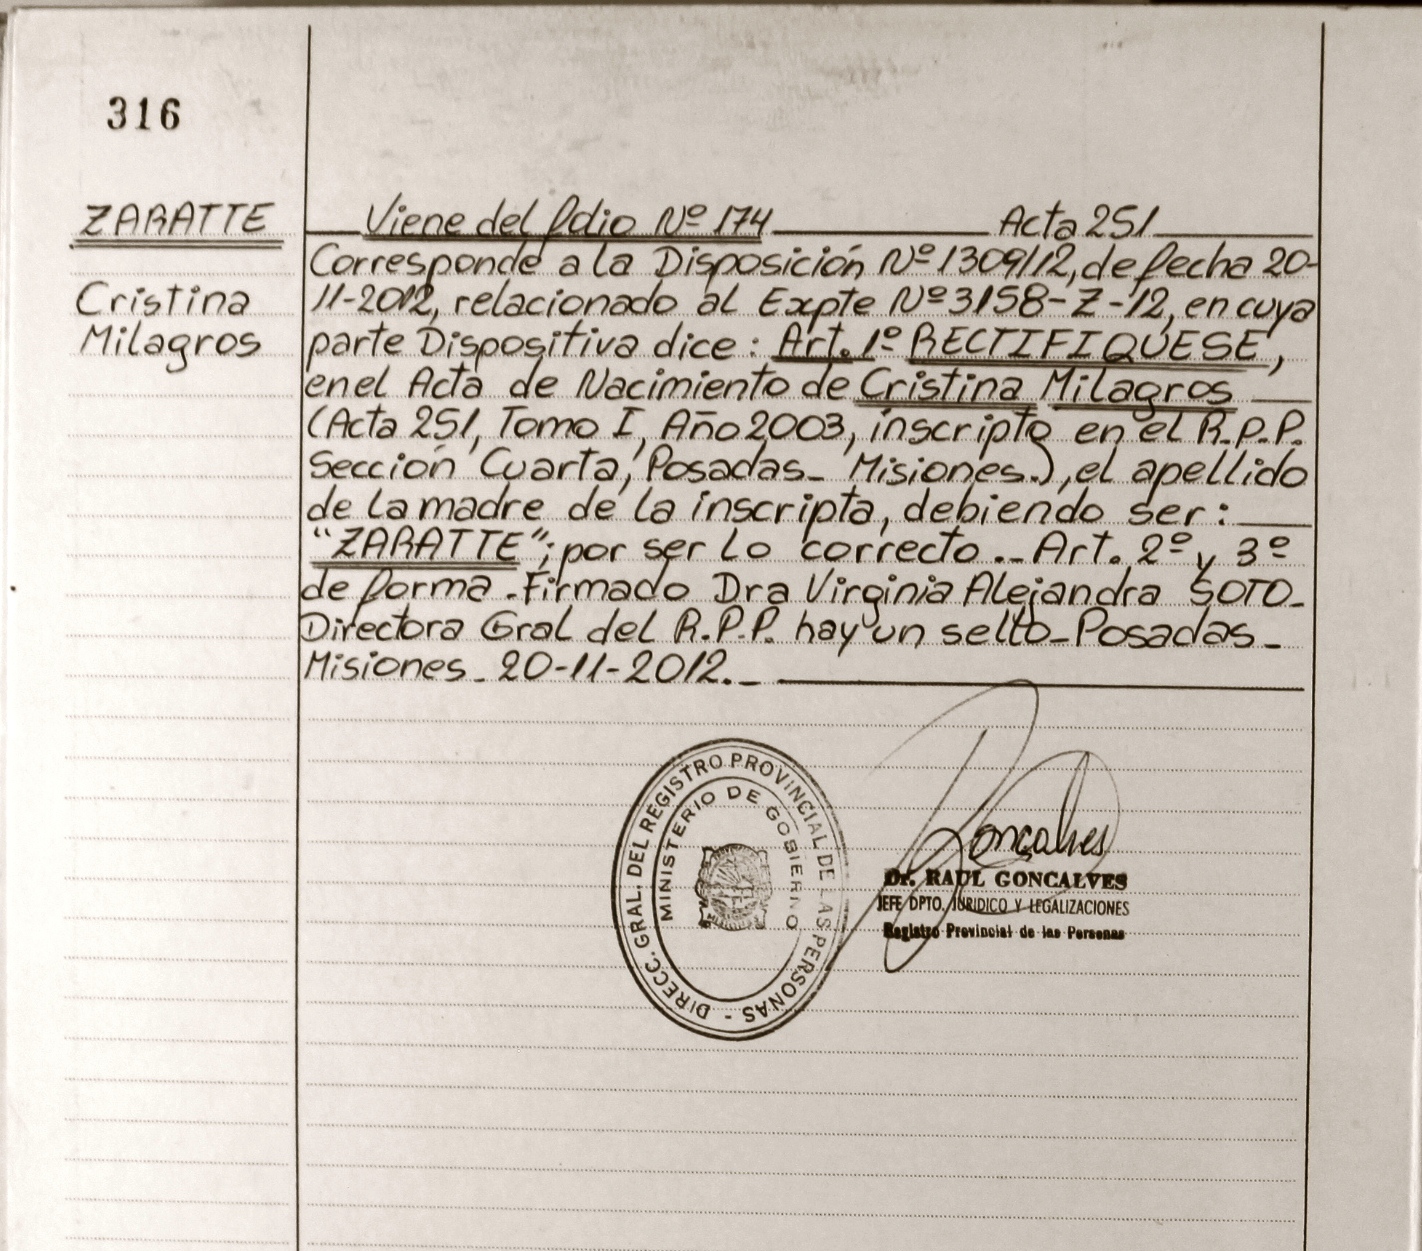 316
ZARATTE
Cristina
Milagros
Viene del folio Nº 174 Acta 251
Corresponde a la Disposición Nº 1309/12, de fecha 20-
11-2012, relacionado al Expte Nº 3158-Z-12, en cuya
parte Dispositiva dice: Art. 1º RECTIFIQUESE,
en el Acta de Nacimiento de Cristina Milagros
(Acta 251, Tomo I, Año 2003, inscripto en el R.P.P.
Sección Cuarta, Posadas_ Misiones.), el apellido
de la madre de la inscripta, debiendo ser:
"ZARATTE"; por ser lo correcto._ Art. 2º y 3º
de forma.-Firmado Dra Virginia Alejandra SOTO_
Directora Gral del R.P.P. hay un sello_Posadas_
Misiones_ 20-11-2012._
DIRECC. GRAL. DEL REGISTRO PROVINCIAL DE LAS PERSONAS -
MINISTERIO DE GOBIERNO
Goncalves
Dr. RAUL GONCALVES
JEFE DPTO. JURIDICO Y LEGALIZACIONES
Registro Provincial de las Personas